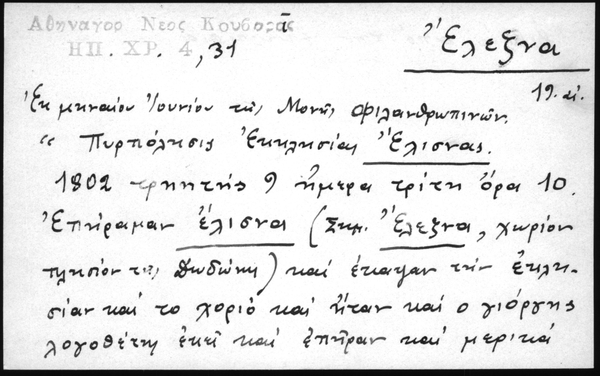 Αθηναγορ Νεος Κουβαρᾶς
ΗΠ. ΧΡ. 4, 31
Ἔλεξνα
19. αἰ.
Ἐκ μηναίου Ἰουνίου τῆς Μονῆς Φιλανθρωπινῶν.
"Πυρπόλησις Ἐκκλησίας Ἔλισνας.
1802 τρηητής 9 ἡμερα τρίτη ὅρα 10.
Ἐπήραμαν ἔλισνα (Σημ. Ἔλεξνα, χωρίον
πλησίον τῆς Δωδώνης) καί ἐκαψαν τήν ἐκλη-
σίαν καί το χοριό καί ἤταν καί ο γιόργης
λογοθέτης ἐκεῖ καί ἐπῆραν καί μερικά